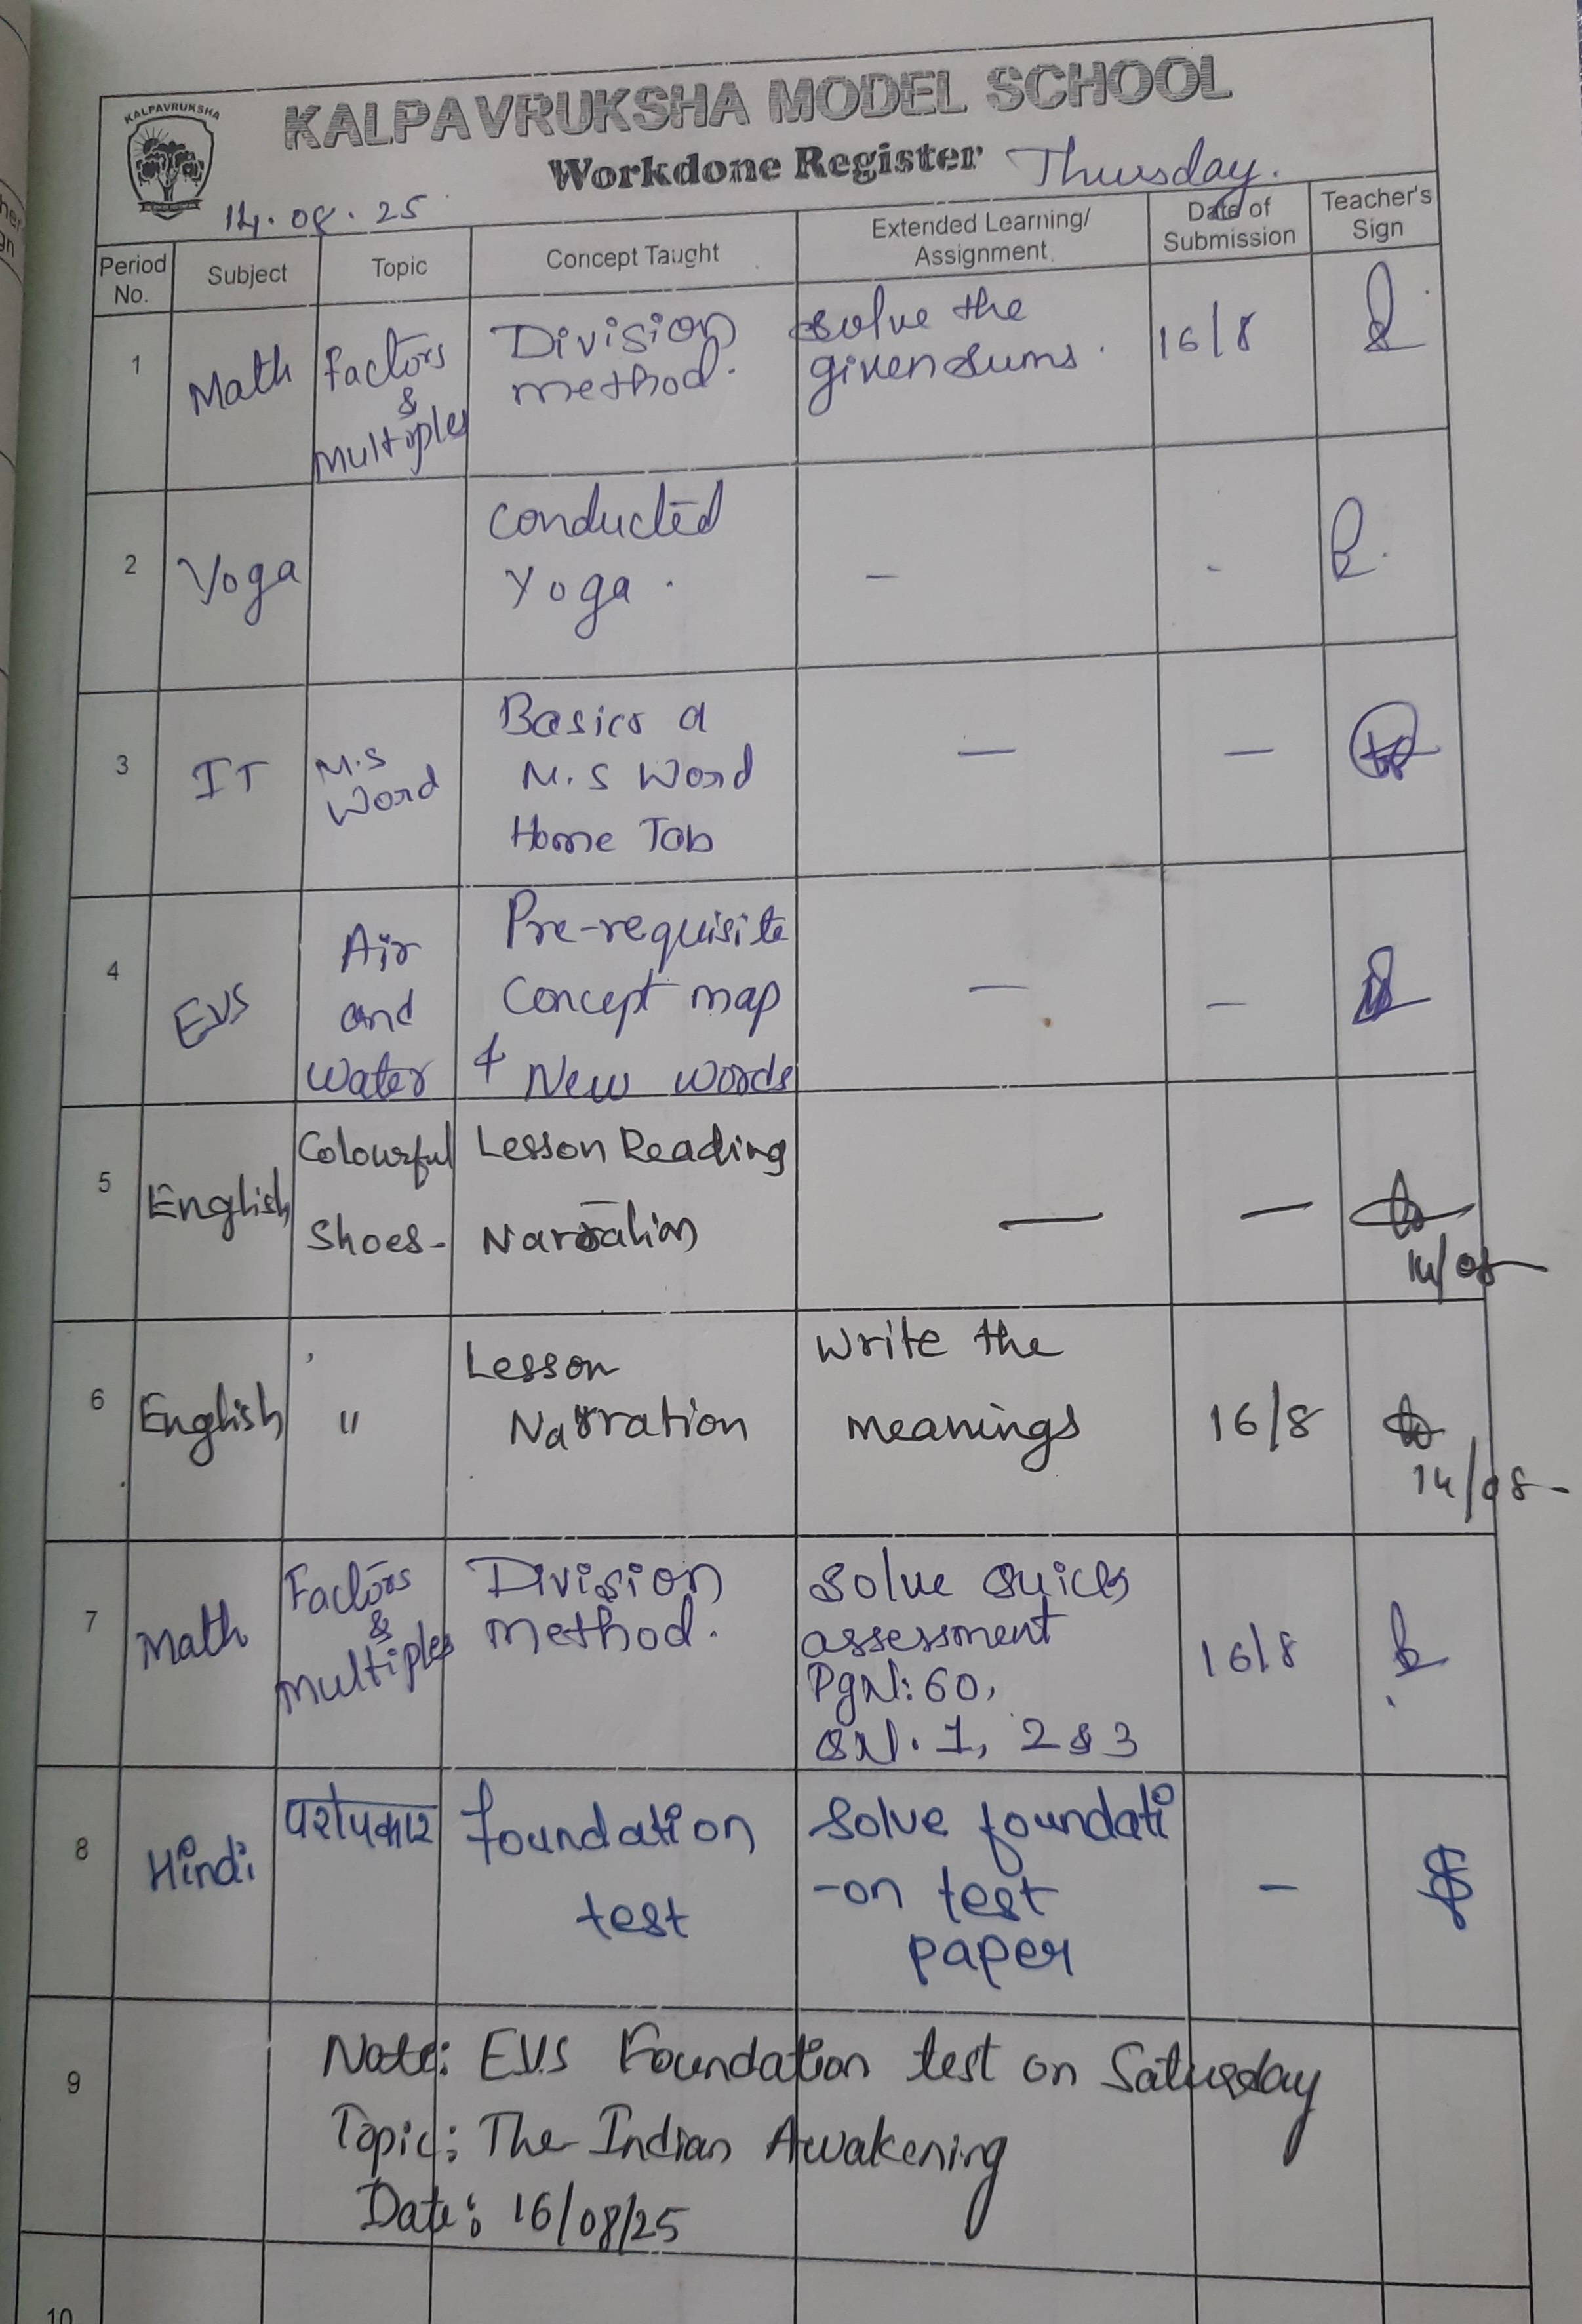 KALPAVRUKSHA
KALPAVRUKSHA MODEL SCHOOL
Workdone Register Thursday.
14.08.25
Period No. Subject Topic Concept Taught Extended Learning/ Assignment Date of Submission Teacher's Sign
1 Math Factors & Multiples Division method. solve the given sums. 16/8
2 Yoga conducted Yoga. - -
3 IT M.S Word Basics M.S Word Home Tab — —
4 EVS Air and Water Pre-requisite Concept map & New words — —
5 English Colourful Shoes- Lesson Reading Narration — — 14/08
6 English " Lesson Narration Write the meanings 16/8 14/08
7 Math Factors & Multiples Division method. Solve Quick assessment PgN: 60, QN. 1, 2 & 3 16/8
8 Hindi परोपकार foundation test Solve foundati -on test paper -
9 Note: EVS Foundation test on Saturday
Topic: The Indian Awakening
Date: 16/08/25
10